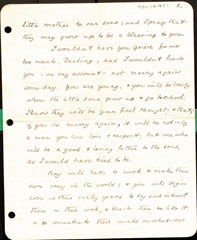 little mother to our sons; and I pray that
they may grow up to be a blessing to you.
I wouldn't have you grieve for me
too much, Darling; and I wouldn't have
you - on my account - not marry again
some day. You are young, & you will be lonely
when the little sons grow up & go to school.
I know they will be your first thought; & that,
if you do marry again, it will be not only
a man you can love & respect, but one who
will be a good & loving father to the sons,
as I would have tried to be.
They will have to work & make their
own way in the world; & you will
even in their early years to try and interest
them in their work, & teach them to like it,
& to concentrate their